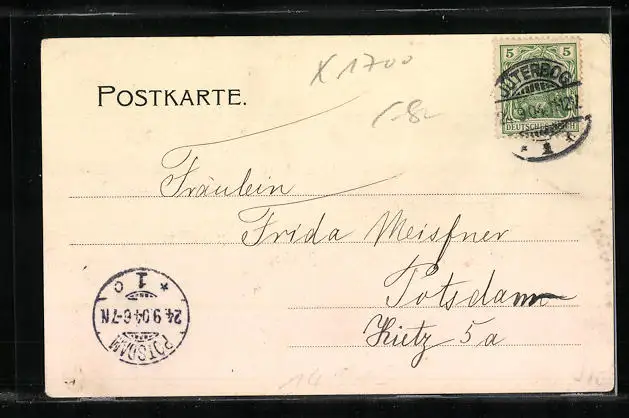 x 1700
5 5
POSTKARTE.
JÜTERBOG
DEUTSCHES REICH
* 1 *
Fräulein
Frida Meisfner
Potsdam
Kietz 5a
* 1 c
24.9.04.6-7N
POTSDAM